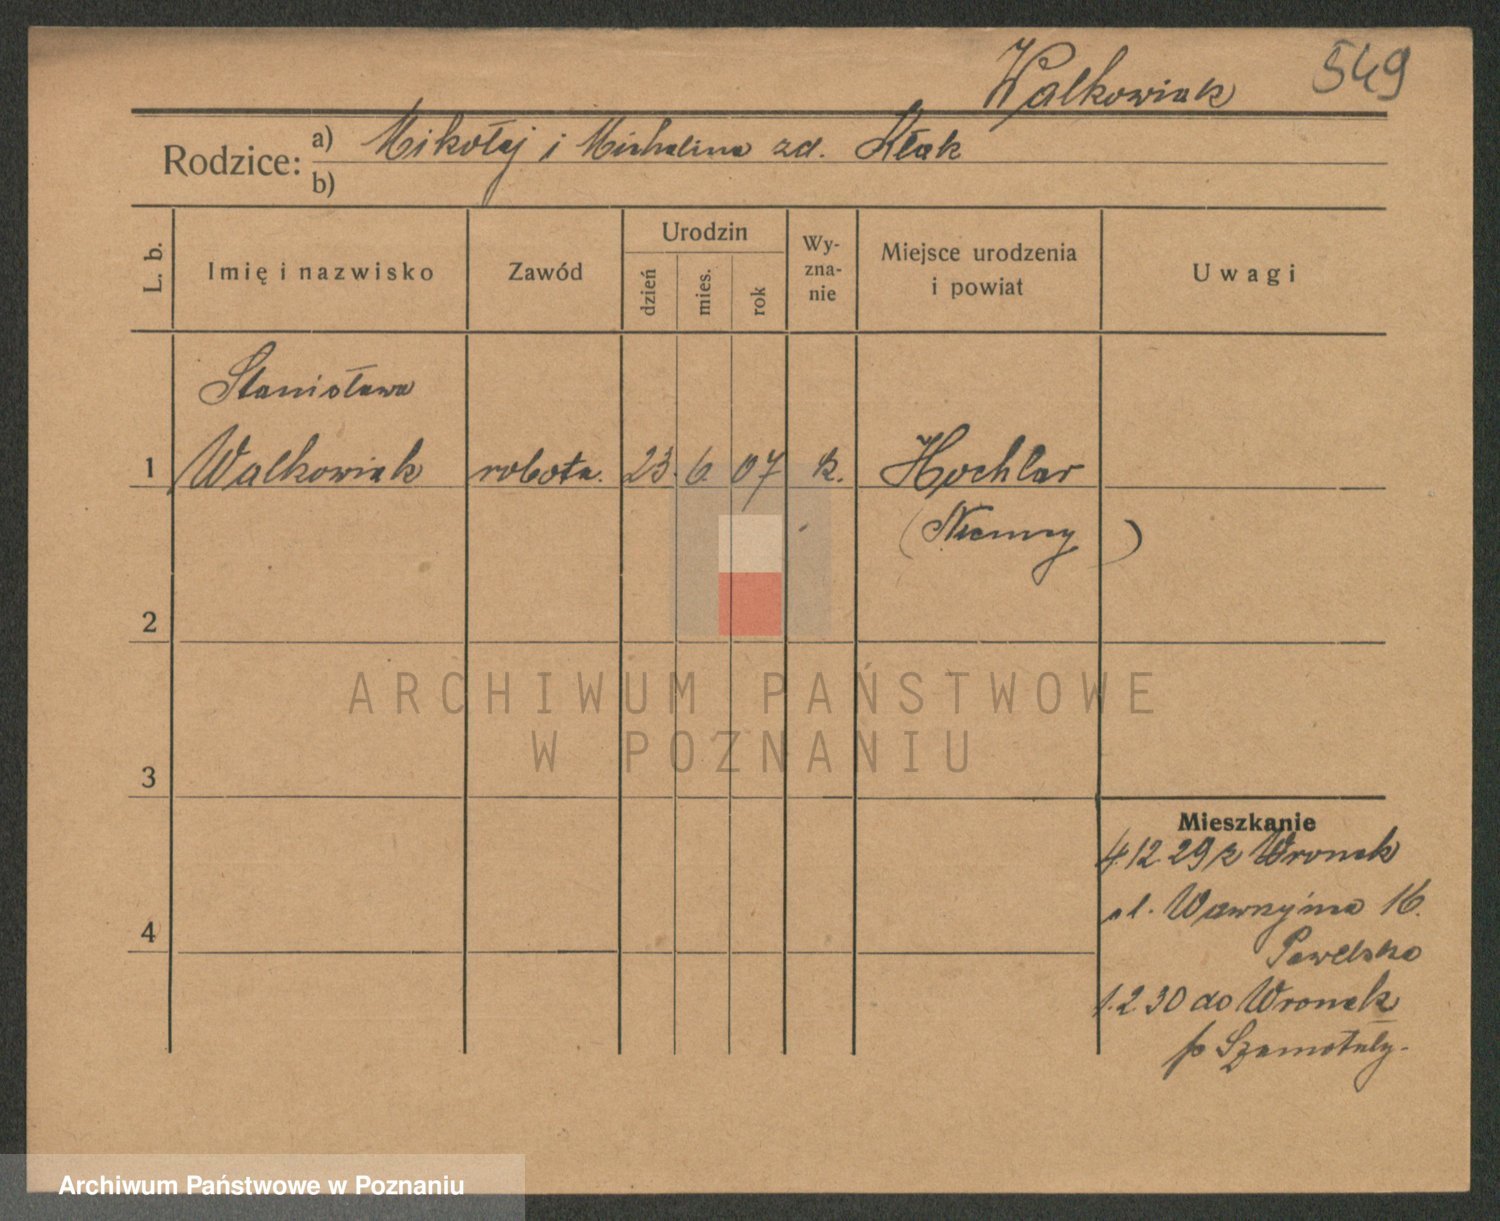 Walkowiak 549
Rodzice: a) Mikołaj i Michalina zd. Kłak
b)
L. b.
Imię i nazwisko
Zawód
Urodzin
dzień
mies.
rok
Wy-
zna-
nie
Miejsce urodzenia
i powiat
Uwagi
Stanisława
1 Walkowiak robotn. 23. 6. 07 k. Hochlar
(Niemcy)
2
ARCHIWUM PAŃSTWOWE
W POZNANIU
3
Mieszkanie
4.12.29 z Wronek
ul. Wawrzyńca 16.
4
1.2.30 do Wronek
p Szamotuły.
Archiwum Państwowe w Poznaniu